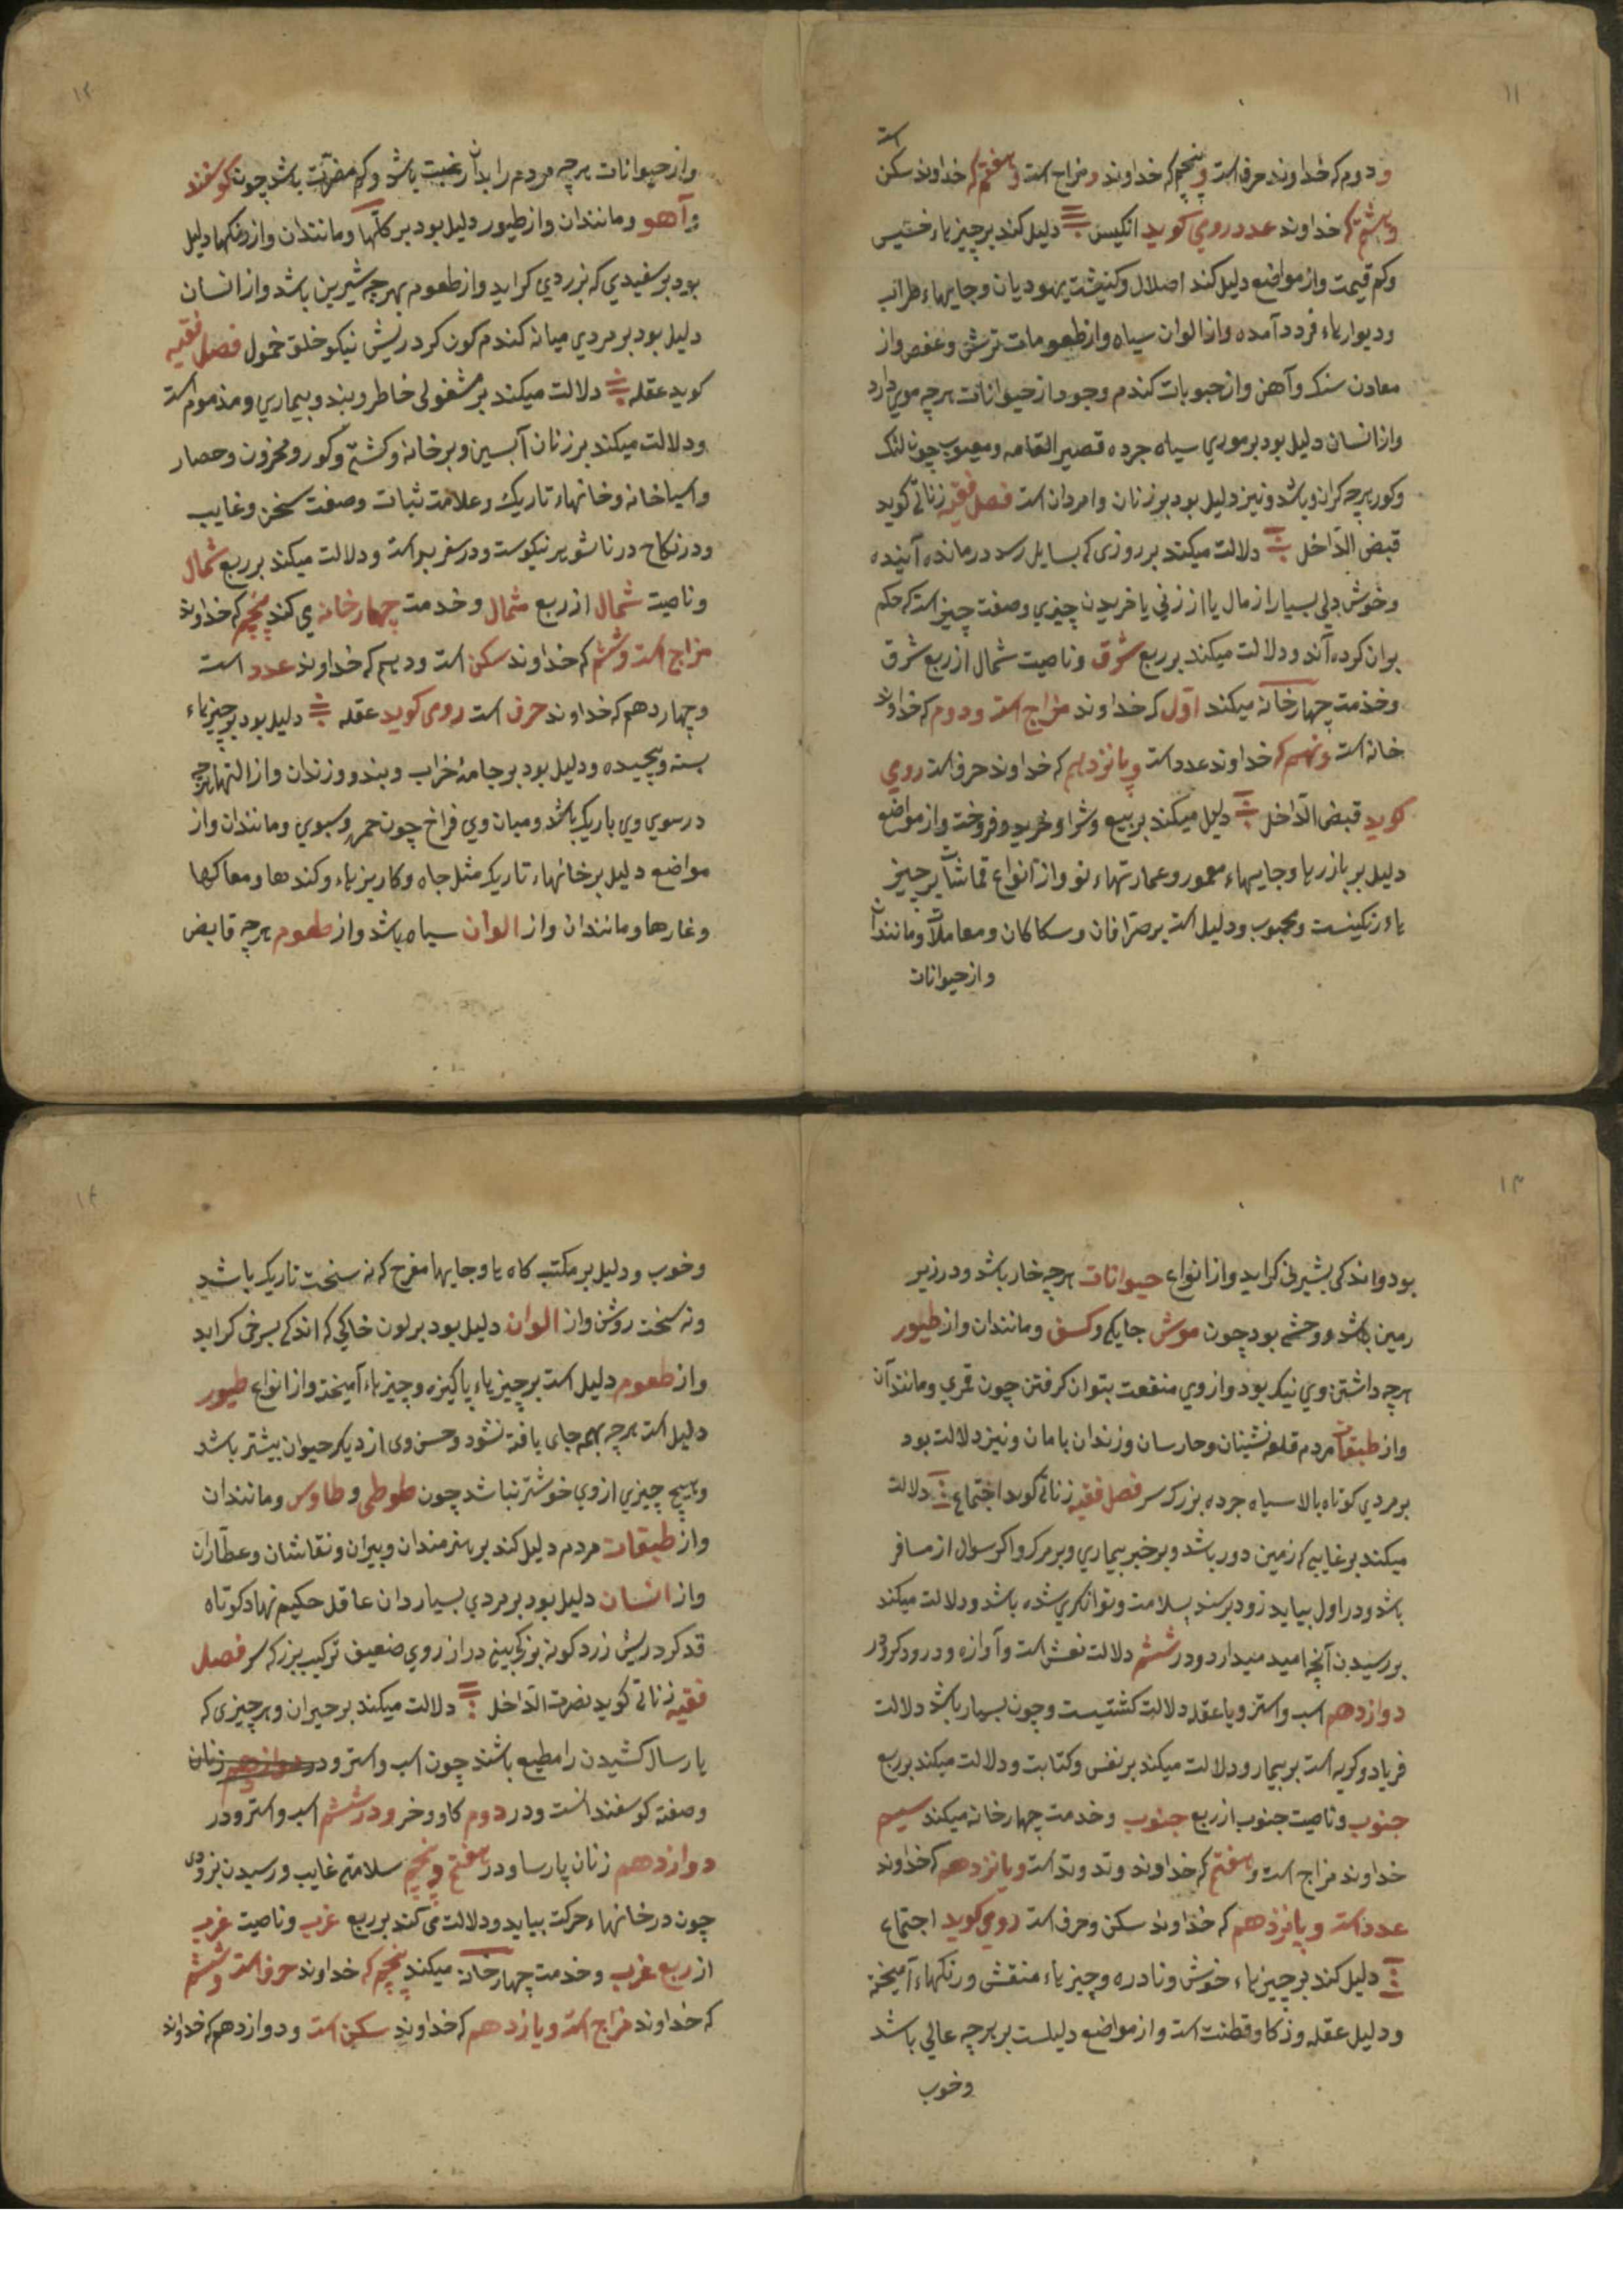 ۱۱
است
و دوم که خداوند حرف است و پنجم که خداوند مزاج است و هفتم که خداوند سکن
و هشتم که خداوند عدد رومی کوید انکیس دلیل کند بر چیزهاء خسیس
وکم قیمت واز مواضع دلیل کند اصلال وکنیشت یهودیان وجایهاء خراب
ودیوارهاء فرود آمده واز الوان سیاه واز طعومات ترش وعفص واز
معادن سنک وآهن واز حبوبات کندم وجو واز حیوانات هرچه موی دارد
واز انسان دلیل بود بر موری سیاه جرده قصیر القامه ومعیوب چون لنک
وکور هرچه کران باشد ونیز دلیل بود بر زنان وامردان است فصل فقیه زناتی کوید
قبض الداخل دلالت میکند بر روزی که بسایل رسد درمانده آینده
وخوش دلی بسیار از مال یا از زنی یا خریدن چیزی وصفت چیزاست که حکم
بران کرده اند ودلالت میکند بر ربع شرق وناصیت شمال از ربع شرق
وخدمت چهارخانه میکند اول که خداوند مزاج است ودوم که خداوند
خانه است ونهم که خداوند عدد است وپانزدهم که خداوند حرف است رومی
کوید قبض الداخل دلیل میکند بر بیع وشرا وخرید وفروخت واز مواضع
دلیل بر بازرها وجایهاء معمور وعمارتهاء نو واز انواع قماشات بر چیز
هاء رنکینست ومحبوب ودلیل است بر صرافان وسکاکان ومعاملان ومانندان
واز حیوانات
۱۲
واز حیوانات هرچه مردم را بدان رغبت باشد وکم مضرت باشد چون کوسفند
وآهو ومانندان واز طیور دلیل بود بر کلنکها ومانندان واز رنکها دلیل
بود بر سفیدی که بزردی کراید واز طعوم بهرچه شیرین باشد واز انسان
دلیل بود بر مردی میانه کندم کون کرد ریش نیکو خلق خمول فصل فقیه
کوید عقله دلالت میکند بر مشغولی خاطر وبند وبیماری ومذموم است
ودلالت میکند بر زنان آبستن وبر خانه وکشتی وکور ومخزون وحصار
واسیاخانه وخانهاء تاریک وعلامت ثبات وصفت سخن وغایب
ودر نکاح در ناشوهر نیکوست ودر سفر بد است ودلالت میکند بر ربع شمال
وناصیت شمال از ربع شمال وخدمت چهارخانه می کند پنجم که خداوند
مزاج است وششم که خداوند سکن است ودهم که خداوند عدد است
وچهاردهم که خداوند حرف است رومی کوید عقله دلیل بود بر چیزهاء
بسته وپیچیده ودلیل بود بر جامهٔ خراب وبند وزندان واز التها هرچه
در سوی وی باریک باشد ومیان وی فراخ چون خمره وسبوی ومانندان واز
مواضع دلیل بر خانهاء تاریک مثل چاه وکاریزهاء وکندها ومعاکها
وغارها ومانندان واز الوان سیاه باشد واز طعوم هرچه قابض
۱۳
بود واندکی بشیرنی کراید واز انواع حیوانات هرچه خار باشد ودر زیر
زمین باشد ووحشی بود چون موش جایکی وکسن ومانندان واز طیور
هرچه داشتن وی نیک بود واز وی منفعت بتوان کرفتن چون قمری ومانند آن
واز طبقات مردم قلعه نشینان وحارسان وزندان بامان ونیز دلالت بود
بر مردی کوتاه بالا سیاه جرده بزرک سر فصل فقیه زناتی کوید اجتماع دلالت
میکند بر غایبی که زمین دور باشد وبر خبر بیماری وبر مرک واکر سوال از مسافر
باشد ودر اول بیاید زود برسند بسلامت وتوانکری شده باشد ودلالت میکند
بر رسیدن آنچه امید میدارد ودر ششم دلالت نعش است وآوازه ودرودکر ودر
دوازدهم اسب واستر وبا عقله دلالت کشتیست وچون بسیار باشد دلالت
فریاد وکریه است بر بیمار ودلالت میکند بر نفس وکتابت ودلالت میکند بر ربع
جنوب وناصیت جنوب از ربع جنوب وخدمت چهارخانه میکند سیم
خداوند مزاج است وهفتم که خداوند وتد وتد است ویانزدهم که خداوند
عدد است وپانزدهم که خداوند سکن وحرف است رومی کوید اجتماع
دلیل کند بر چیزهاء خوش ونادره وچیزهاء منقش ورنکهاء آمیخته
ودلیل عقله وذکا وفطنت است واز مواضع دلیلست بر هرچه عالی باشد
وخوب
۱۴
وخوب ودلیل بر مکتب کاه ها وجایها مفرح که نه سخت تاریک باشد
ونه سخت روشن واز الوان دلیل بود بر لون خاکی که اندکی بسرخی کراید
واز طعوم دلیل است بر چیزهاء پاکیزه وچیزهاء آمیخته واز انواع طیور
دلیل است هرچه بهمه جای یافته نشود وحسن وی از دیکر حیوان بیشتر باشد
وهیچ چیزی از وی خوشتر نباشد چون طوطی وطاوس ومانندان
واز طبقات مردم دلیل کند بر هنرمندان وبیران ونقاشان وعطاران
واز انسان دلیل بود بر مردی بسیار دان عاقل حکیم نهاد کوتاه
قد کرد ریش زرد کونه بزرک بینی دراز روی ضعیف ترکیب بزرک سر فصل
فقیه زناتی کوید نصرت الداخل دلالت میکند بر حیران وهر چیزی که
یارسال کشیدن را مطیع باشند چون اسب واستر ودر دوازدهم زنان
وصفته کوسفندانست ودر دوم کاو وخر ودر ششم اسب واستر ودر
دوازدهم زنان پارسا ودر هفتم وپنجم سلامتی غایب ورسیدن بزودی
چون در خانهاء حرکت بیاید ودلالت می کند بر ربع غرب وناصیت غرب
از ربع غرب وخدمت چهارخانه میکند پنجم که خداوند حرف است وششم
که خداوند مزاج است ویازدهم که خداوند سکن است ودوازدهم که خداوند